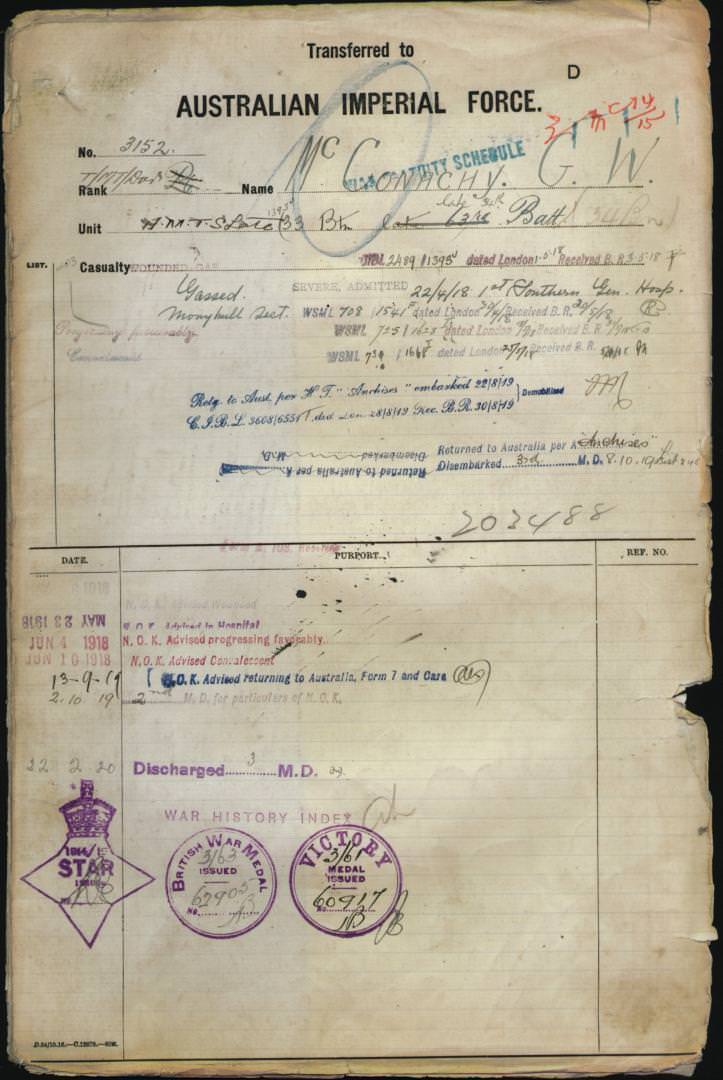 Transferred to
D
AUSTRALIAN IMPERIAL FORCE.
Mc 14/15
No. 3152.
WAR GRATUITY SCHEDULE
Rank Name McCONACHY. G. W.
late 34th
Unit 1395 (33 Btn late 63rd Batt 34Bn)
LIST. Casualty WOUNDED GAS 2489 /1395 dated London 1-5-18 Received B. R. 3-5-18
SEVERE, ADMITTED 22/4/18 1st Southern Gen. Hosp.
Gassed.
Monyhull Sect. WSML 708 1541 dated London 30/4/18 Received B. R. 30/5/18
Progressing favourably WSML 725 1625 dated London Received B. R.
Convalescent WSML 739 1668 dated London Received B. R.
Retg. to Aust. per H T " Anchises " embarked 22/8/19 } Demobilised
C.I.B.L. 3608/6551 ded Lon 28/8/19 Rec. B.R. 30/8/19
Returned to Australia per A "Anchises"
Disembarked M.D.
Returned to Australia per A
Disembarked 3rd M. D. 8.10.19
203488
DATE. PURPORT. REF. NO.
1918 N. O. K. Advised Wounded
MAY 23 1918 N. O. K. Advised in Hospital
JUN 4 1918 N. O. K. Advised progressing favorably.
JUN 10 1918 N. O. K. Advised Convalescent
13-9-19 N.O.K. Advised returning to Australia, Form 7 and Case
2.10 19 2nd M. D. for particulars of N. O. K.
22 2 20 Discharged 3 M.D.
WAR HISTORY INDEX
1914/1
STAR
ISSUED
No.
BRITISH WAR MEDAL
3/63
ISSUED
62905
No.
VICTORY
3/61
MEDAL
ISSUED
60917
No.